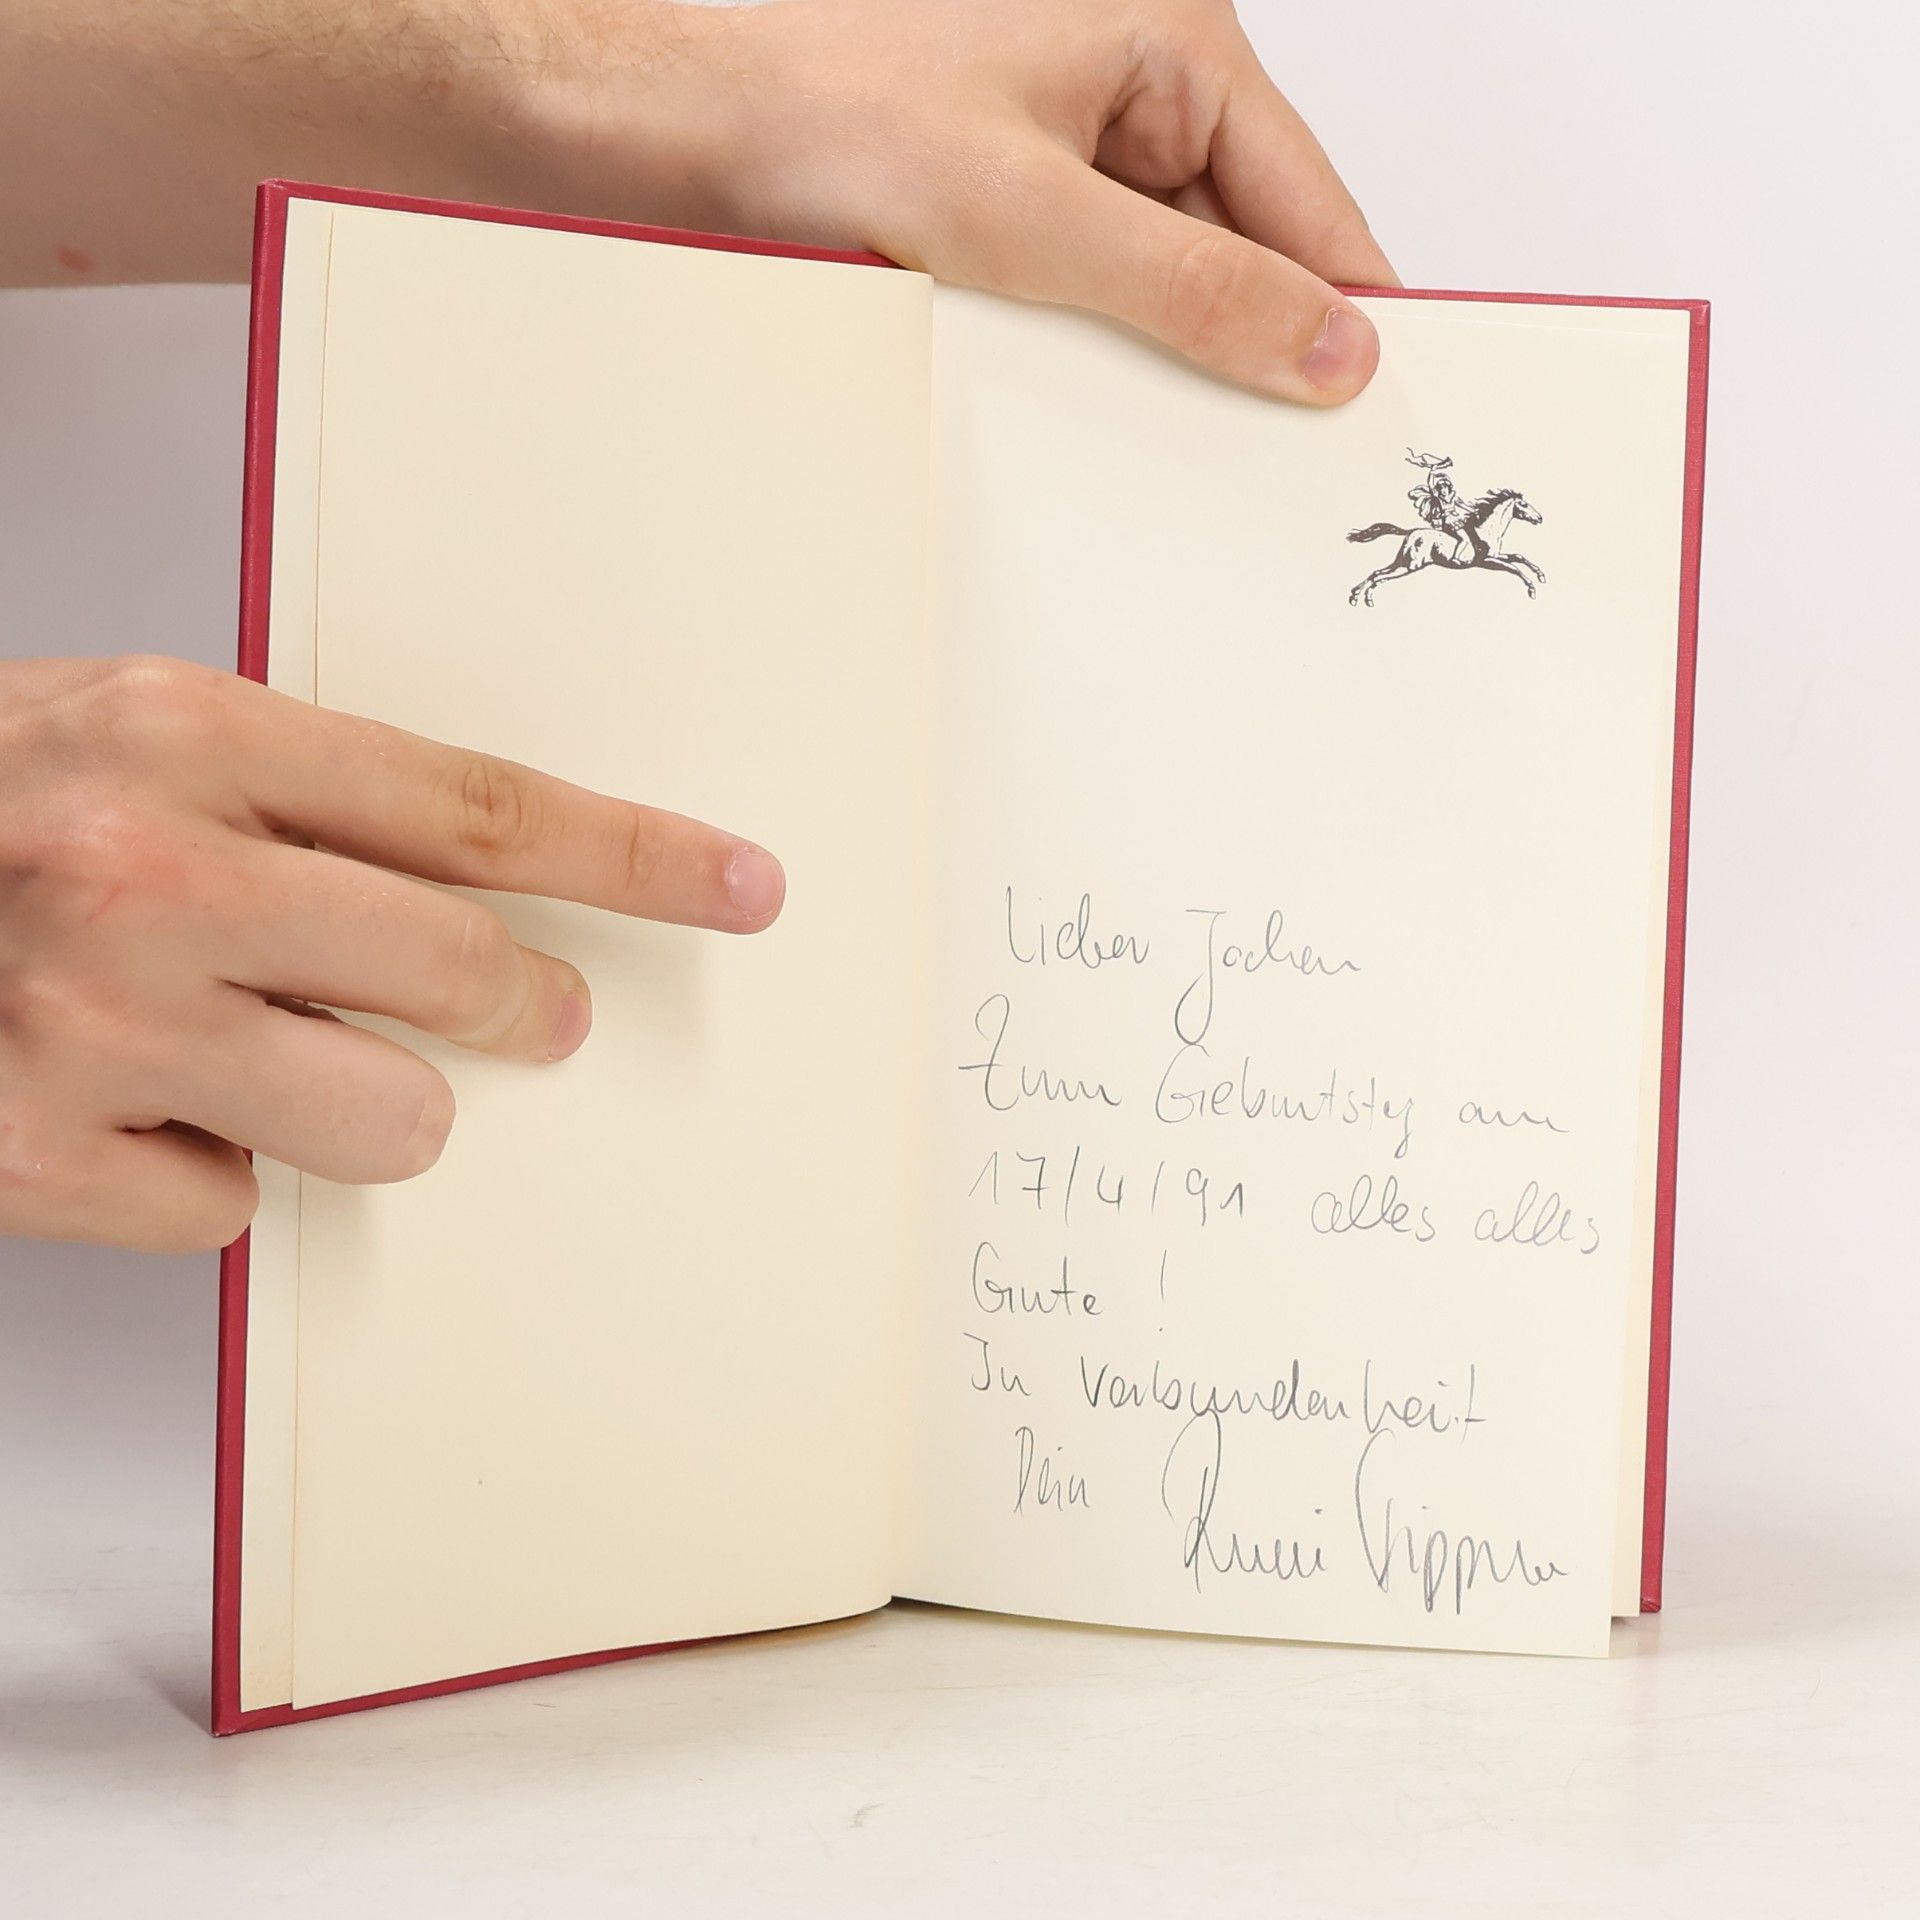 Lieber Jochen
Zum Geburtstag am
17/4/91 alles alles
Gute !
In Verbundenheit
Dein